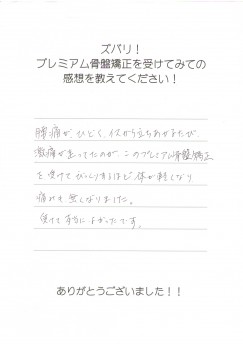 ズバリ！
プレミアム骨盤矯正を受けてみての
感想を教えてください！
腰痛が、ひどく、イスから立ちあがるたび
激痛が走ってたのが、このプレミアム骨盤矯正
を受けてびっくりするほど体が軽くなり
痛みも無くなりました。
受けて本当によかったです。
ありがとうございました！！